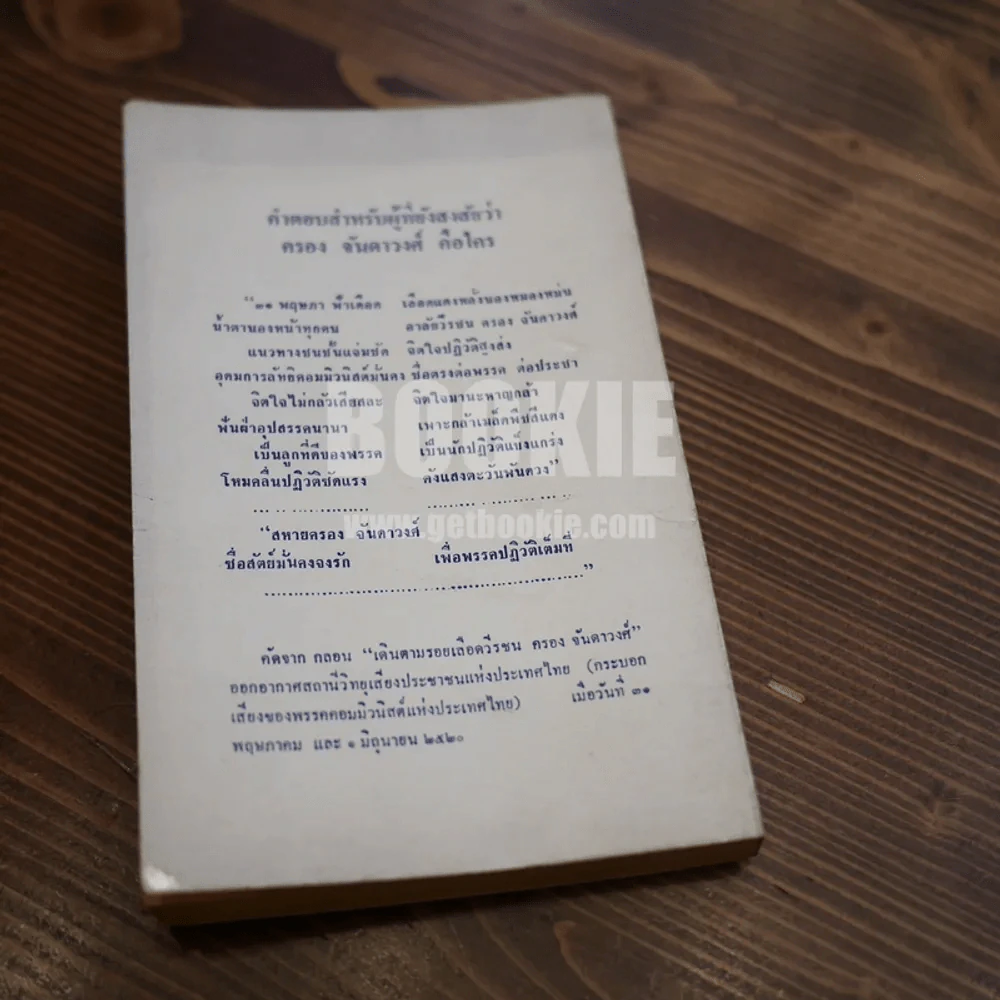 คำตอบสำหรับผู้ที่ยังสงสัยว่า
ครอง จันดาวงศ์ คือใคร
"๓๑ พฤษภา ฟ้าเดือด เลือดแดงหลั่งนองหนองหม่น
น้ำตานองหน้าทุกคน อาลัยวีรชน ครอง จันดาวงศ์
แนวทางชนชั้นแจ่มชัด จิตใจปฏิวัติสูงส่ง
อุดมการลัทธิคอมมิวนิสต์มั่นคง ซื่อตรงต่อพรรค ต่อประชา
จิตใจไม่กลัวเสียสละ จิตใจมานะหาญกล้า
ฟันฝ่าอุปสรรคนานา เพาะกล้าเมล็ดพืชสีแดง
เป็นลูกที่ดีของพรรค เป็นนักปฏิวัติแข็งแกร่ง
โหมคลื่นปฏิวัติชัดแรง ดังแสงตะวันพันดวง"
BOOKIE
www.getbookie.com
"สหายครอง จันดาวงศ์
ซื่อสัตย์มั่นคงจงรัก เพื่อพรรคปฏิวัติเต็มที่
"
คัดจาก กลอน "เดินตามรอยเลือดวีรชน ครอง จันดาวงศ์"
ออกอากาศสถานีวิทยุเสียงประชาชนแห่งประเทศไทย (กระบอก
เสียงของพรรคคอมมิวนิสต์แห่งประเทศไทย) เมื่อวันที่ ๓๑
พฤษภาคม และ ๑ มิถุนายน ๒๕๒๐